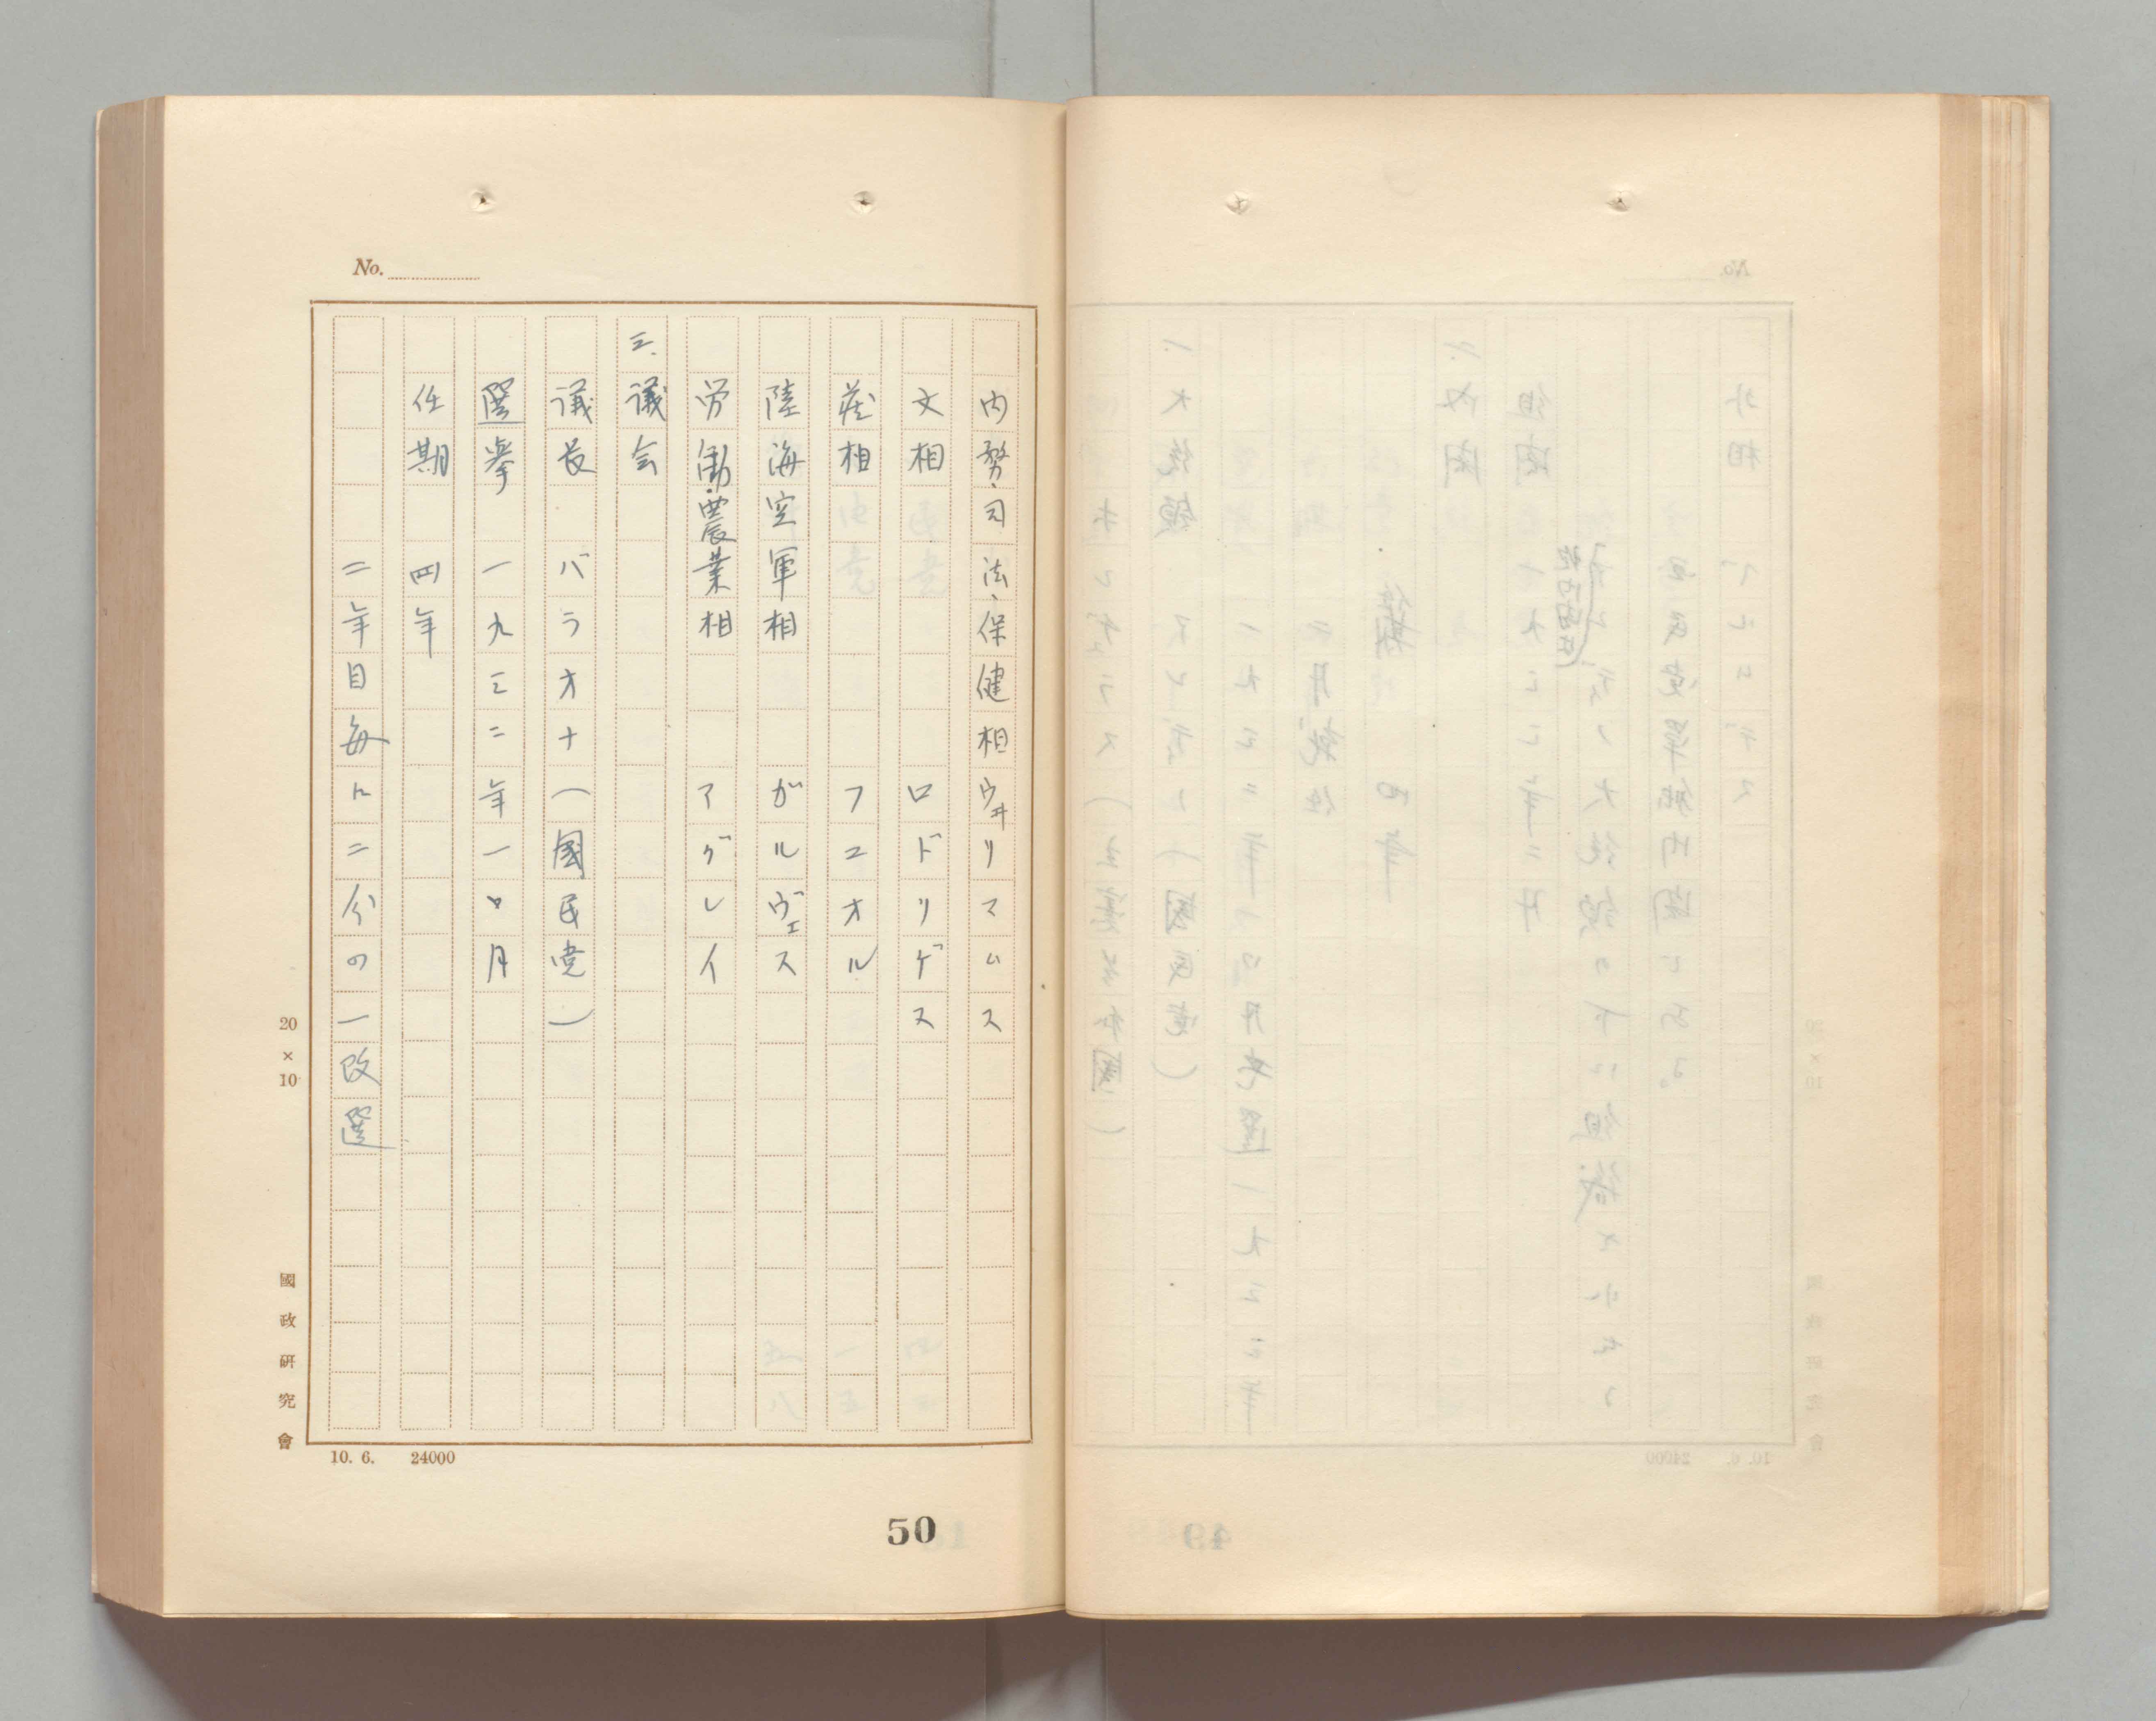 No.
内務・司法・保健相ウヰリマムス
文相 ロドリゲス
蔵相 フユオル
陸海空軍相 ガルヴェス
労働・農業相 アグレイ
三、議会
議長 バラオナ(國民党)
選挙 一九三二年一〇月
任期 四年
二年目毎に二分の一改選
20×10
國政研究會
10. 6. 24000
50